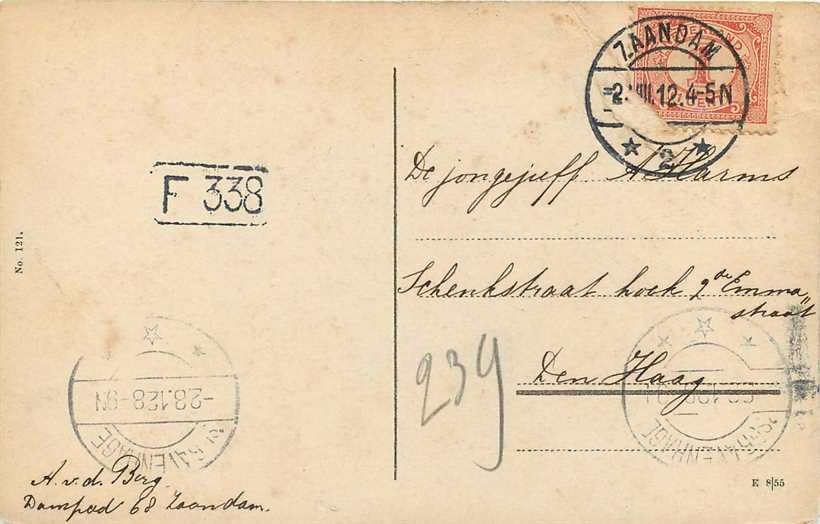 ZAANDAM
2. VIII.12.4-5N
2
NEDERLAND
1
CENT
F 338
No. 121.
De jongejuff A. Harms
Schenkstraat hoek 2de Emma"
straat
Den Haag
239
-2.8.12 8-9N
'S GRAVENHAGE
'S GRAVENHAGE
A. v. d. Berg.
Dampad 68 Zaandam.
E 8/55